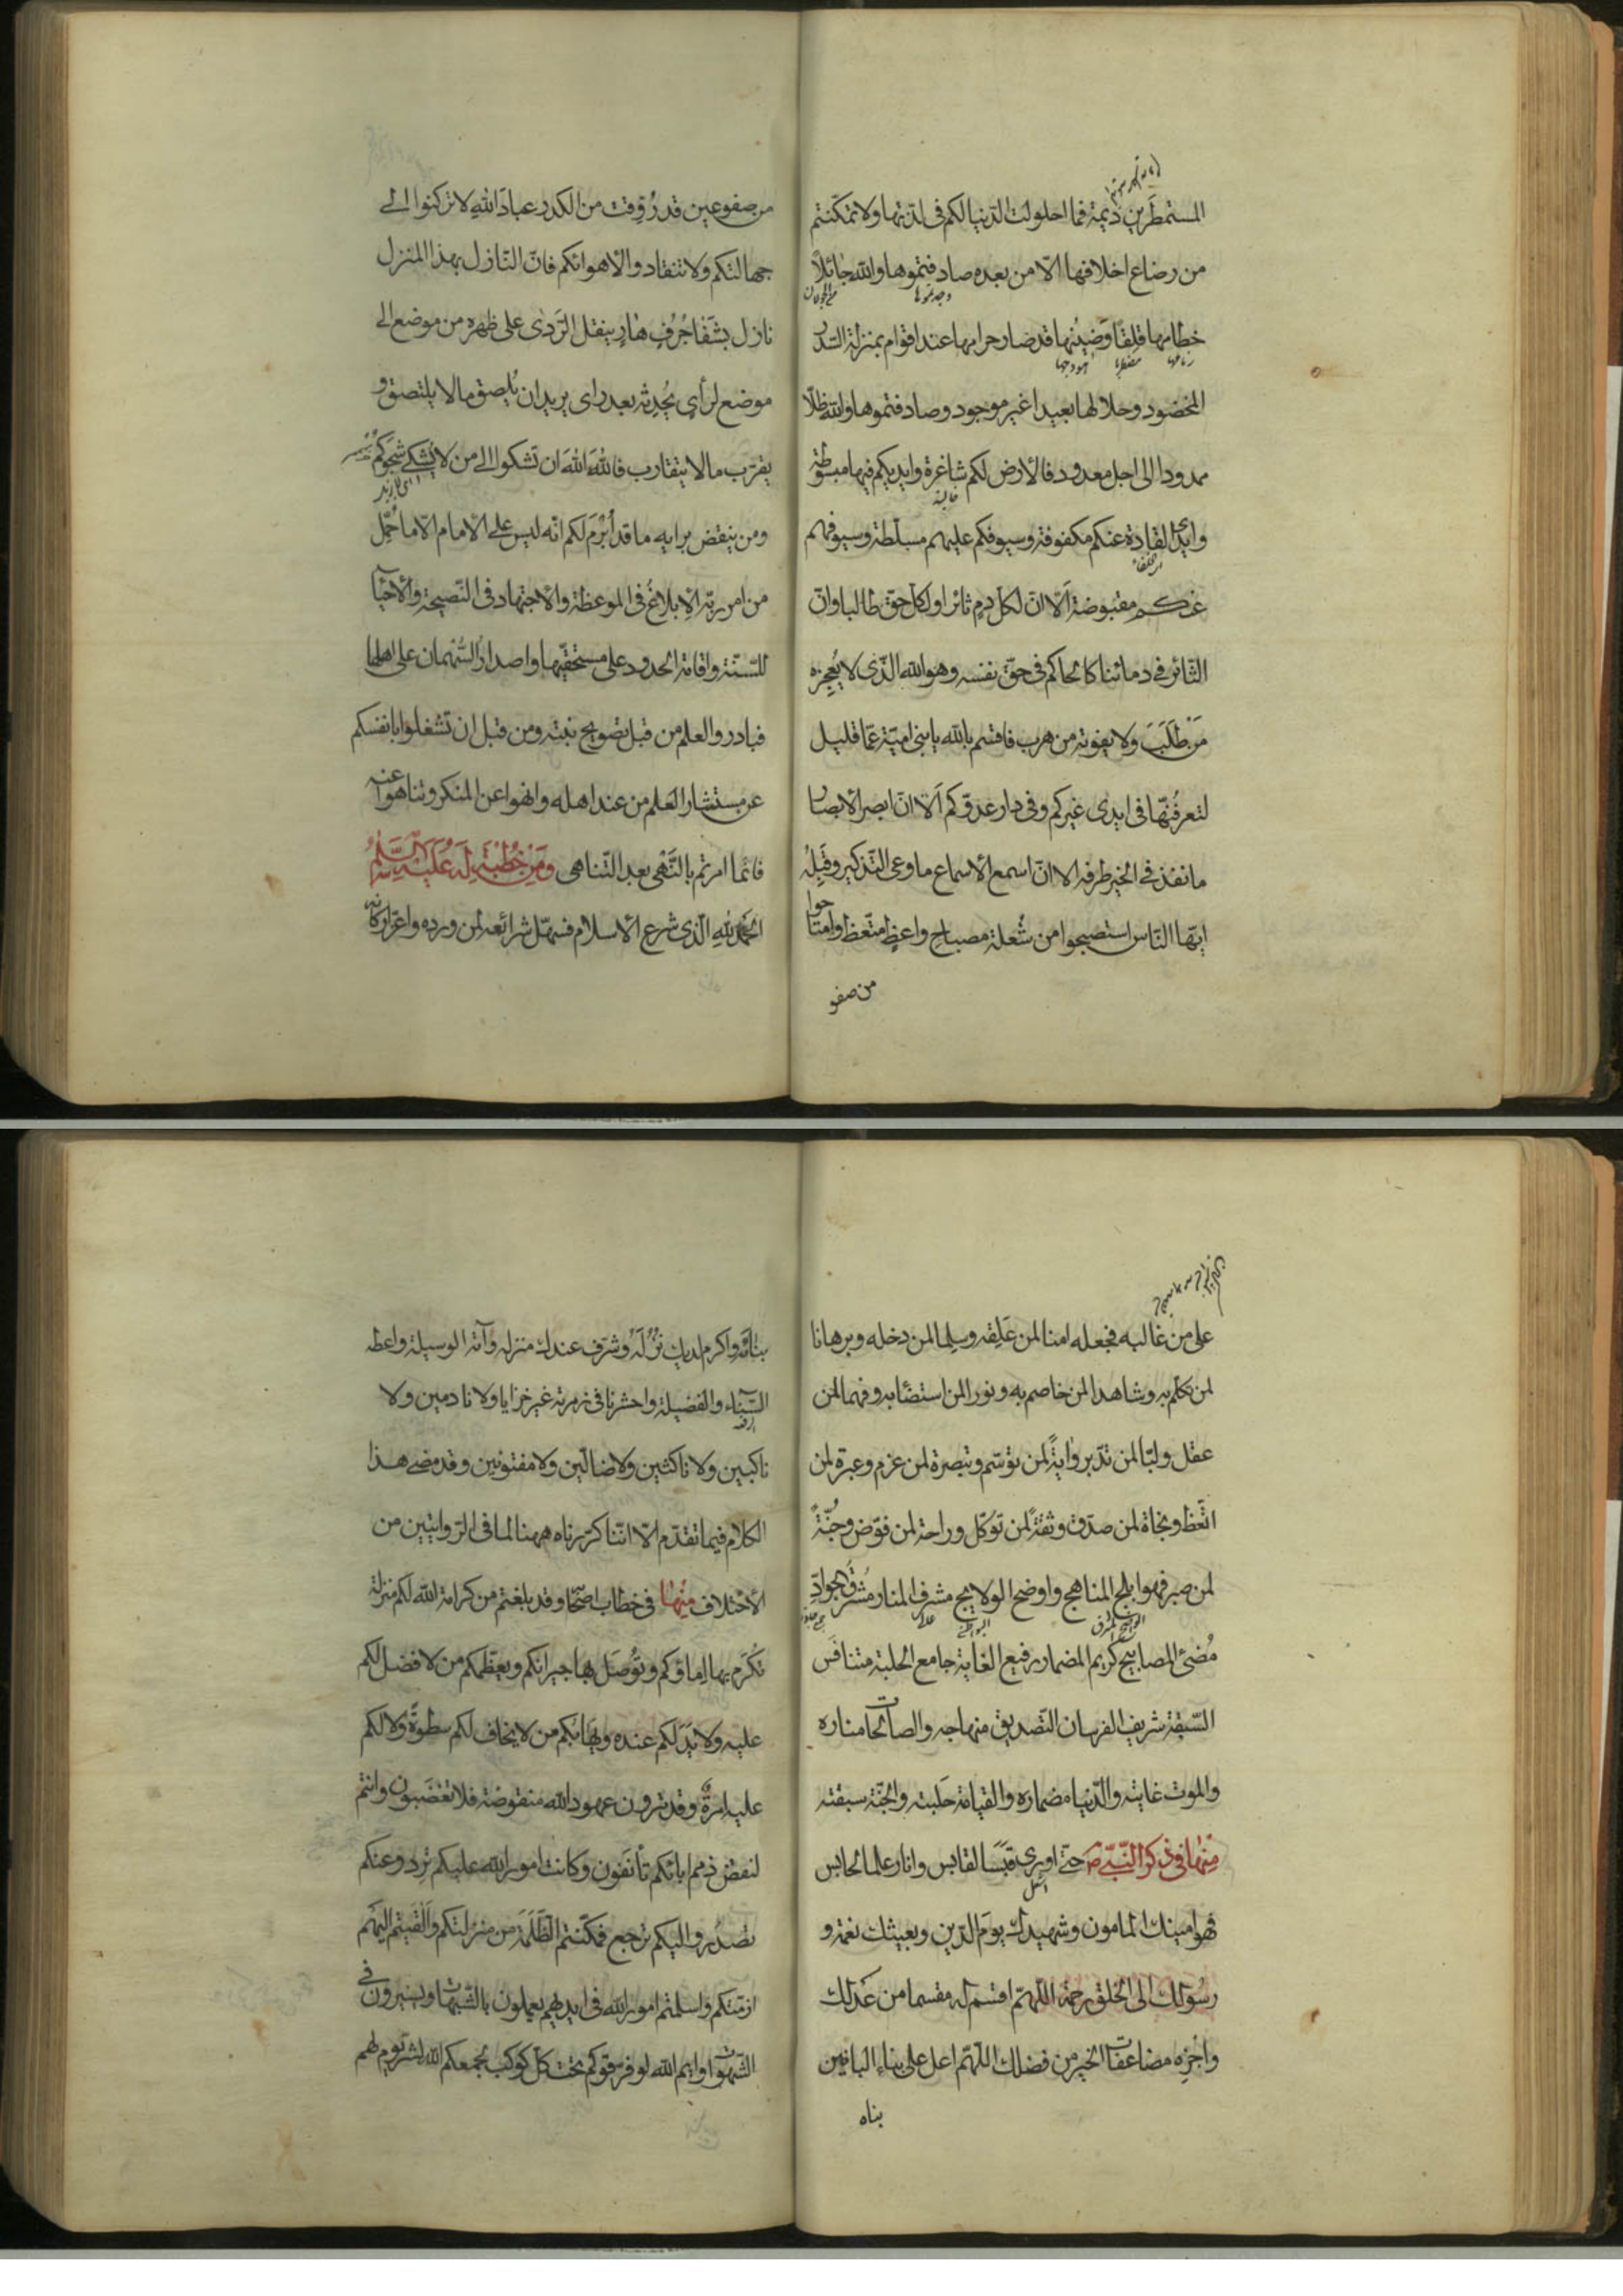 المستمطرين ديمة فما احلولت الدنيا لكم فى لذتها ولا تمكنتم
من رضاع اخلافها الا من بعده صادفتموها والله جائلا
خطامها قلقا وضينها قد صار حرامها عند اقوام بمنزلة السدر
المخضود وحلالها بعيدا غير موجود وصادفتموها والله ظلا
ممدودا الى اجل معدود فالارض لكم شاغرة وايديكم فيها مبسوطة
وايدى القادة عنكم مكفوفة وسيوفكم عليهم مسلطة وسيوفهم
عنكم مقبوضة الا ان لكل دم ثائرا ولكل حق طالبا وان
الثائر فى دمائنا كالحاكم فى حق نفسه وهو الله الذى لا يعجزه
من طلب ولا يفوته من هرب فاقسم بالله يا بنى امية عما قليل
لتعرفنها فى ايدى غيركم وفى دار عدوكم الا ان ابصر الابصار
ما نفذ فى الخير طرفه الا ان اسمع الاسماع ما وعى التذكير وقبله
ايها الناس استصبحوا من شعلة مصباح واعظ متعظ وامتاحوا
من صفو
من صفو عين قد روقت من الكدر عباد الله لا تركنوا الى
جهالتكم ولا تنقادوا الاهوائكم فان النازل بهذا المنزل
نازل بشفا جرف هار ينقل الردى على ظهره من موضع الى
موضع لرأى يحدثه بعد راى يريد ان يلصق ما لا يلتصق و
يقرب ما لا يتقارب فالله الله ان تشكوا الى من لا يشكى شجوكم
ومن ينقض برايه ما قد أبرم لكم انه ليس على الامام الا ما حمل
من امر ربه الابلاغ فى الموعظة والاجتهاد فى النصيحة والاحيآ
للسنة واقامة الحدود على مستحقيها واصدار السهمان على اهلها
فبادروا العلم من قبل تصويح نبته ومن قبل ان تشغلوا بانفسكم
عن مستثار العلم من عند اهله وانهوا عن المنكر وتناهوا عنه
فانما امرتم بالنهى بعد التناهى ومن خطبة له عليه السلم
الحمد لله الذى شرع الاسلام فسهل شرائعه لمن ورده واعز اركانه
على من غالبه فجعله امنا لمن علقه وسلما لمن دخله وبرهانا
لمن تكلم به وشاهدا لمن خاصم به ونورا لمن استضآء به وفهما لمن
عقل ولبا لمن تدبر واية لمن توسم وتبصرة لمن عزم وعبرة لمن
اتعظ ونجاة لمن صدق وثقة لمن توكل وراحة لمن فوض وجنة
لمن صبر فهو ابلج المناهج واوضح الولايج مشرف المنار مشرق الجواد
مضئ المصابيح كريم المضمار رفيع الغاية جامع الحلبة متنافس
السبقة شريف الفرسان التصديق منهاجه والصالحات مناره
والموت غايته والدنيا مضماره والقيامة حلبته والجنة سبقته
منها فى ذكر النبى ص حتى اورى قبسا لقابس وانار علما لحابس
فهو امينك المامون وشهيدك يوم الدين وبعيثك نعمة و
رسولك الى الخلق رحمة اللهم اقسم له مقسما من عدلك
واجزه مضاعفات الخير من فضلك اللهم اعل على بناء البانين
بناه
بناءه واكرم لديك نزله وشرف عندك منزله وآته الوسيلة واعطه
السناء والفضيلة واحشرنا فى زمرته غير خزايا ولا نادمين ولا
ناكبين ولا ناكثين ولا ضالين ولا مفتونين وقد مضى هذا
الكلام فيما تقدم الا اننا كررناه ههنا لما فى الروايتين من
الاختلاف منها فى خطاب اصحابه وقد بلغتم من كرامة الله لكم منزلة
تكرم بها اماؤكم وتوصل بها جيرانكم ويعظمكم من لا فضل لكم
عليه ولا يد لكم عنده ويهابكم من لا يخاف لكم سطوة ولا لكم
عليه امرة وقد ترون عهود الله منقوضة فلا تغضبون وانتم
لنقض ذمم ابائكم تأنفون وكانت امور الله عليكم ترد وعنكم
تصدر واليكم ترجع فمكنتم الظلمة من منزلتكم والقيتم اليهم
ازمتكم واسلمتم امور الله فى ايديهم يعملون بالشبهات ويسيرون فى
الشهوات وايم الله لو فرقوكم تحت كل كوكب لجمعكم الله لشر يوم لهم